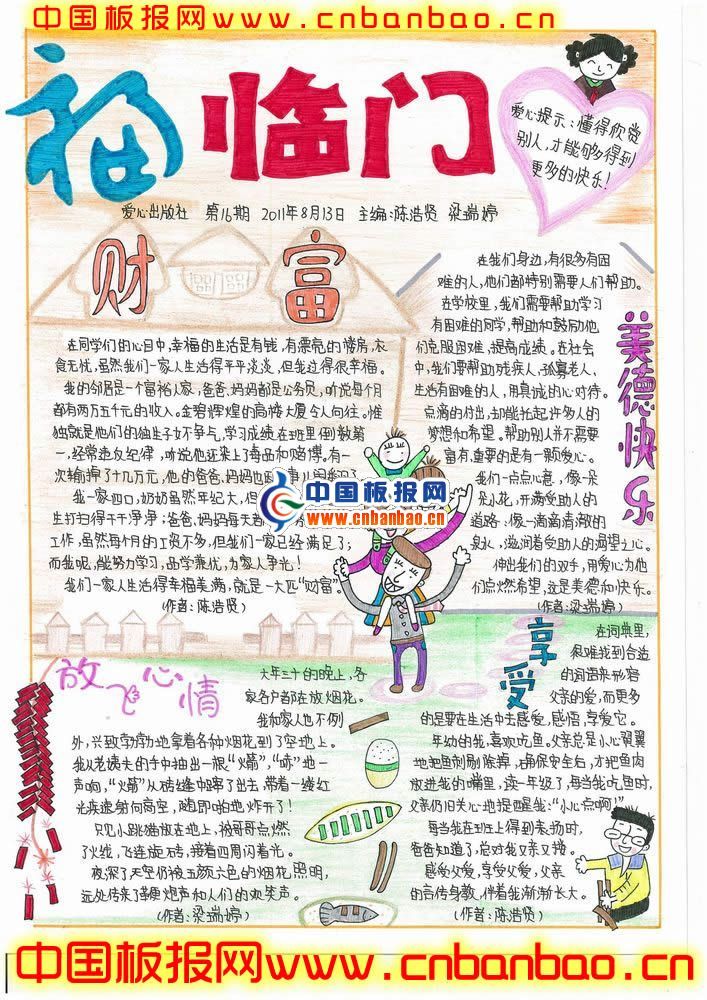 中国板报网www.cnbanbao.cn
福临门
爱心提示：懂得欣赏
别人，才能够多得到
更多的快乐！
爱心出版社 第16期 2011年8月13日 主编：陈浩贤 梁瑞婷
财富
在同学们的心目中，幸福的生活是有钱，有漂亮的楼房，衣
食无忧，虽然我们一家人生活得平平淡淡，但我过得很幸福。
我的邻居是一个富裕人家，爸爸、妈妈都是公务员，听说每个月
都有两万五千元的收入。金碧辉煌的高楼大厦令人向往。惟
独就是他们的独生子如不争气，学习成绩在班里倒数第
一，经常违反纪律，听说他还染上了毒品和赌博。有一
次输掉了十几万元，他的爸爸、妈妈也因
我一家四口，奶奶虽然年纪大，但
生打扫得干干净净；爸爸、妈妈每天都
工作，虽然每个月的工资不多，但我们一家已经满足了；
而我呢，能努力学习，品学兼优，为家人争光！
我们一家人生活得幸福美满，就是一大匹“财富”。
（作者：陈浩贤）
美德快乐
在我们身边，有很多有困
难的人，他们都特别需要人们帮助。
在学校里，我们需要帮助学习
有困难的同学，帮助和鼓励他
们克服困难，提高成绩。在社会
中，我们要帮助残疾人、孤寡老人、
生活有困难的人，用真诚的心对待。
点滴的付出，却能托起许多人的
梦想和希望。帮助别人并不需要
富有，重要的是有一颗爱心。
我们一点点心意，像一朵
朵小花，开满受助人的
道路，像一滴滴清澈的
泉水，滋润着受助人的渴望之心。
伸出我们的双手，用爱心为他
们点燃希望，这是美德和快乐。
（作者：梁瑞婷）
中国板报网
www.cnbanbao.cn
放飞心情
大年三十的晚上，各
家各户都在放烟花。
我和家人也不例
外，兴致勃勃地拿着各种烟花到了空地上。
我从老姨夫的手中抽出一根“火箭”，“嗖”地一
声响，“火箭”从砖缝中窜了出去，带着一缕红
光疾速射向高空，随即啪地炸开了！
只见小跳猫放在地上，被哥哥点燃
了火线，飞速旋转，接着四周闪着光。
夜深了天空仍被五颜六色的烟花照明，
远处传来了鞭炮声和人们的欢笑声。
（作者：梁瑞婷）
享受
在词典里，
很难找到合适
的词语来形容
父亲的爱，而更多
的是要在生活中去感爱，感悟，享爱它。
年幼的我，喜欢吃鱼。父亲总是小心翼翼
地把鱼刺剔除掉，确保安全后，才把鱼肉
放进我的嘴里，读一年级了，每当我吃鱼时，
父亲仍旧关心地提醒我：“小心点啊！”
每当我在班上得到表扬时，
爸爸知道了，总对我又亲又搂。
感受父爱，享受父爱，父亲
的言传身教，伴着我渐渐长大。
（作者：陈浩贤）
中国板报网www.cnbanbao.cn